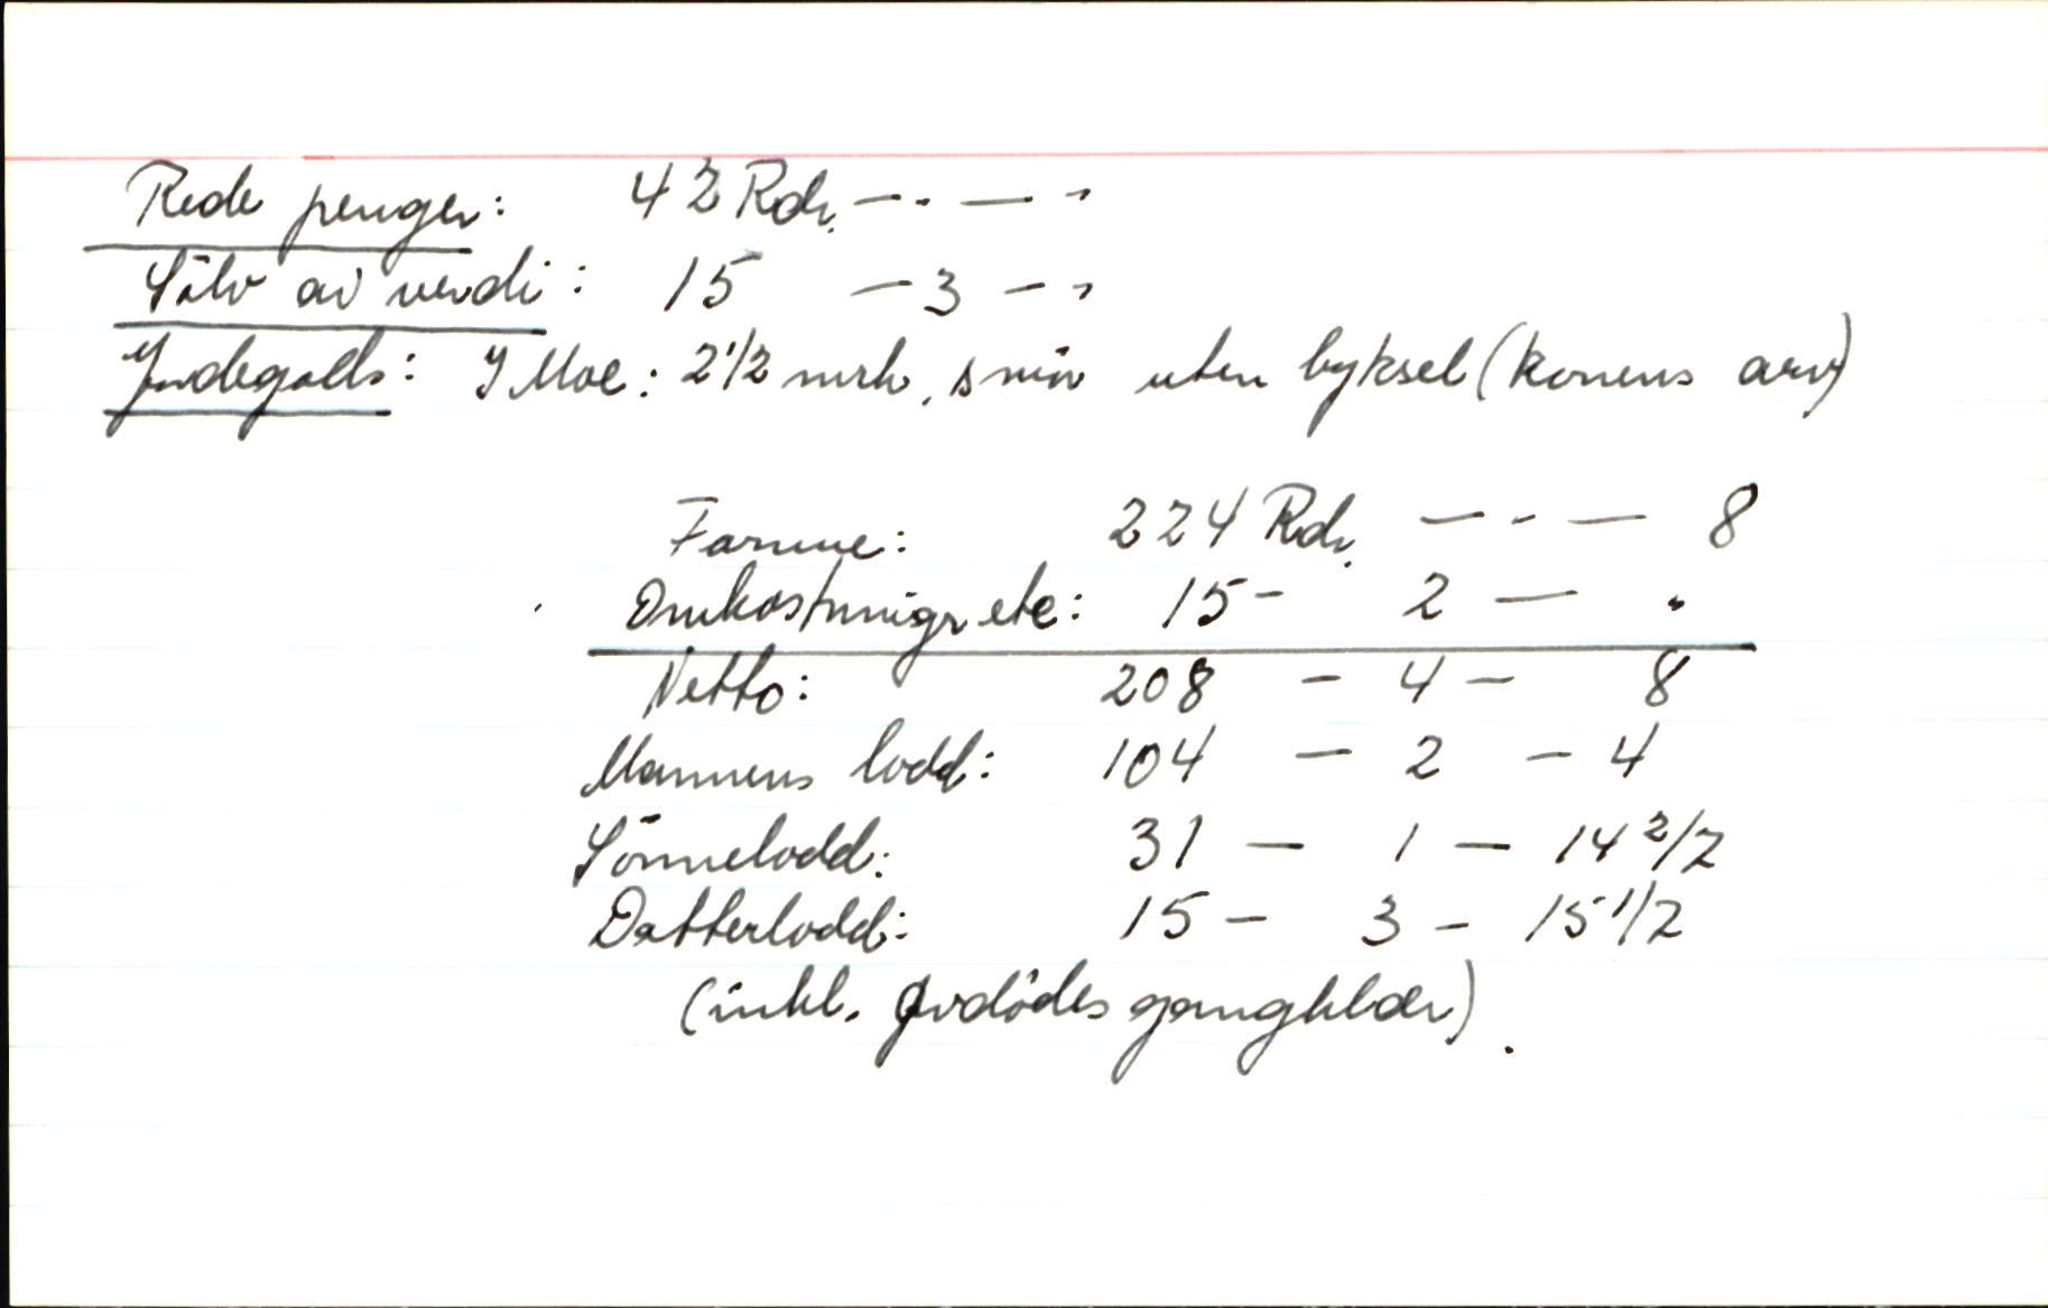 Rede penger: 42 Rdr. — · — "
Sölv av verdi: 15 — 3 — "
Jordegods: I Moe: 2 1/2 mrk. smör uten byksel (konens arv)
Formue: 224 Rdr. — - — 8
Omkostninger etc: 15 - 2 — "
Netto: 208 — 4 — 8
Mannens lodd: 104 — 2 — 4
Sönnelodd: 31 — 1 — 14 2/7
Datterlodd: 15 — 3 — 15 1/7
(inkl. avdödes gangklær).